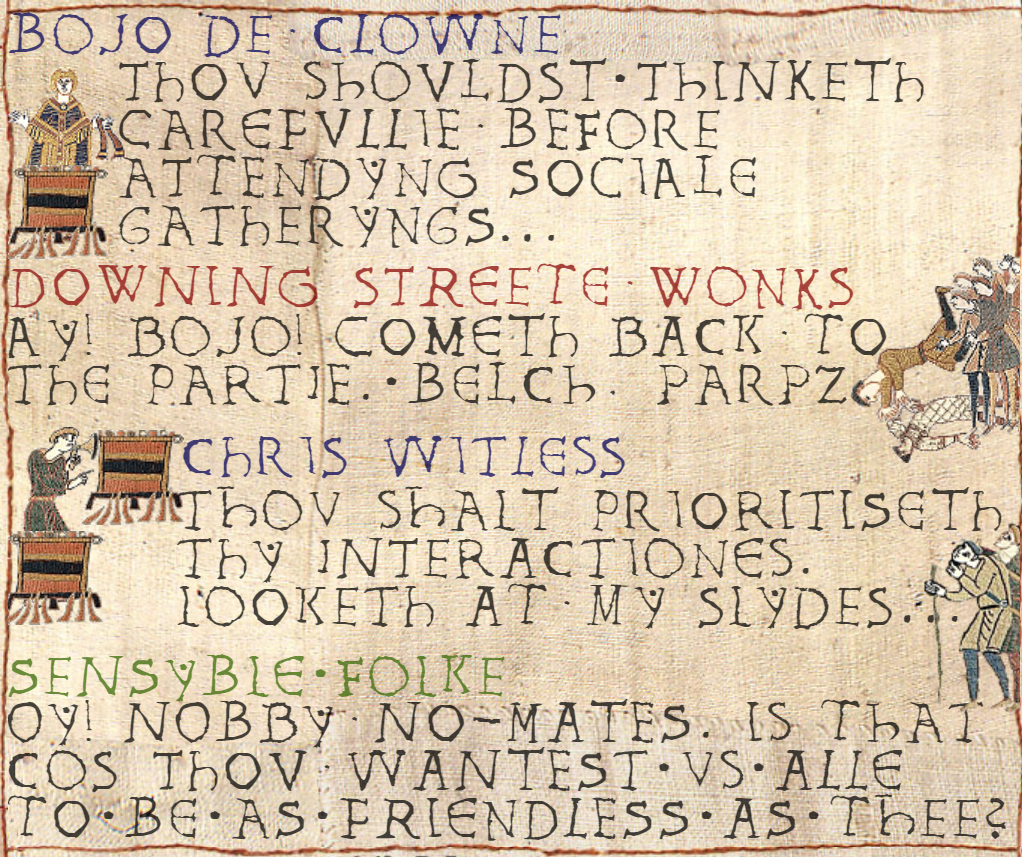 BOJO DE · CLOWNE
ThOV ShOVLDST · ThINKETh
CAREFVLLIE · BEFORE
ATTENDYNG SOCIALE
GAThERYNGS...
DOWNING STREETE · WONKS
AY! BOJO! COMETh BACK · TO
ThE PARTIE. · BELCh · PARPZ
ChRIS WITLESS
ThOV ShALT PRIORITISETh
ThY INTERACTIONES.
LOOKETh AT · MY SLYDES...
SENSYBLE · FOLKE
OY! NOBBY · NO-MATES. IS ThAT
COS ThOV · WANTEST · VS · ALLE
TO · BE · AS · FRIENDLESS · AS · ThEE?